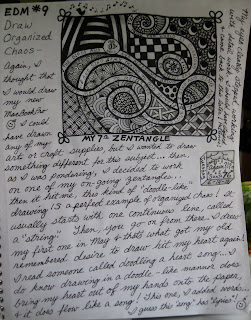 EDM #9
Draw
Organized
Chaos-
Again, I
thought that
I would draw
my new
MacBook Pro
I could
have drawn
any of my
MY 7th ZENTANGLE
art or craft supplies but I wanted to draw
something different for this subject... then,
as I was pondering, I decided to work
on one of my on-going zentangles..
then it hit me: this kind of "doodle-like"
drawing is a perfect example of organized chaos! It
usually starts with one continuous line, called
a "string". Then, you go on from there. I did
my first one in May & that's what got my old
remembered desire to draw hit my heart again!
I read someone called doodling a heart song... I
do know drawing in a doodle-like manner does
bring my heart out of my hands onto the paper
& it does flow like a song! This one, I added words...
I guess this "song" has "lyrics"!